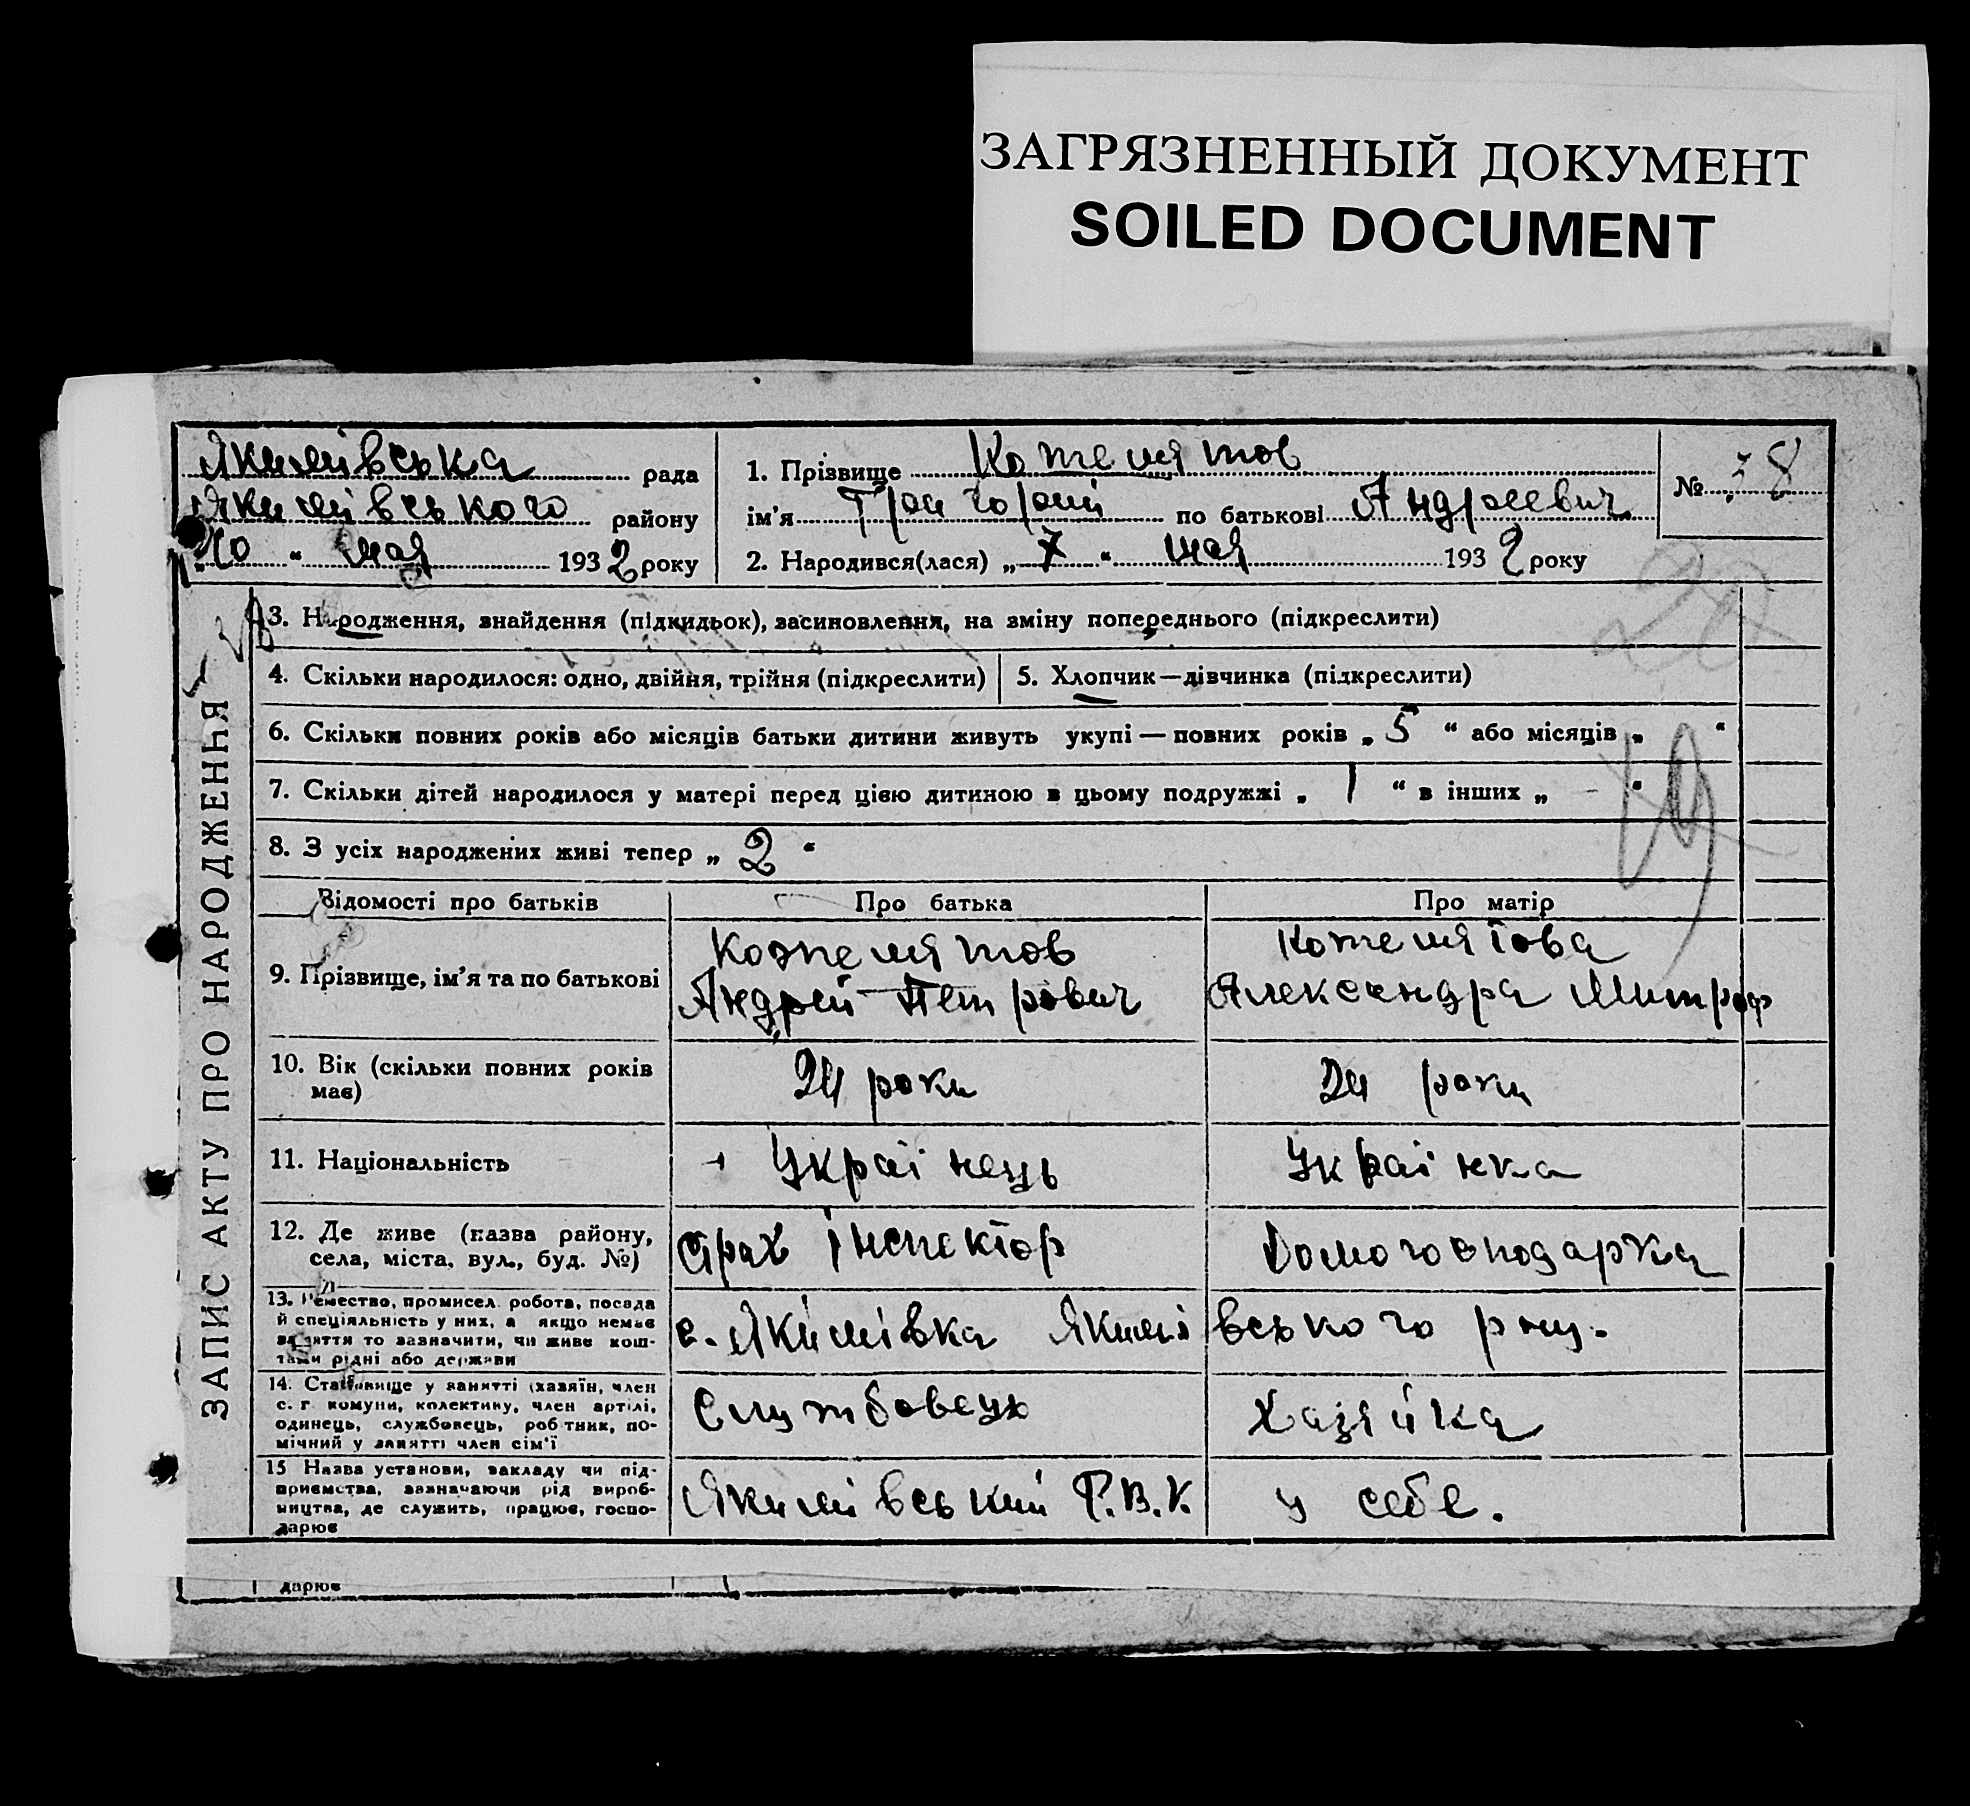 ЗАГРЯЗНЕННЫЙ ДОКУМЕНТ
SOILED DOCUMENT
Якимівська рада
Якимівського району
„10“ мая 1932 року
1. Прізвище Кожемятов
ім'я Григорий по батькові Андреевич
2. Народився(лася) „7“ мая 1932 року
№ 38
20
ЗАПИС АКТУ ПРО НАРОДЖЕННЯ
3. Народження, знайдення (підкидьок), засиновлення, на зміну попереднього (підкреслити)
4. Скільки народилося: одно, двійня, трійня (підкреслити)
5. Хлопчик—дівчинка (підкреслити)
6. Скільки повних років або місяців батьки дитини живуть укупі — повних років „5“ або місяців „ “
7. Скільки дітей народилося у матері перед цією дитиною в цьому подружжі „1“ в інших „-“
8. З усіх народжених живі тепер „2“
19
Відомості про батьків Про батька Про матір
9. Прізвище, ім'я та по батькові
Кожемятов
Андрей Петрович
Кожемятова
Александра Митроф
10. Вік (скільки повних років має)
24 роки
24 роки
11. Національність
Украінець
Украінка
12. Де живе (назва району, села, міста, вул., буд. №)
Страх інспектор
Домогосподарка
13. Ремество, промисел робота, посада й спеціяльність у них, а якщо немає заняття то зазначити, чи живе коштами рідні або держави
с. Якимівка Якимівського рну.
14. Становище у занятті (хазяїн, член с. г. комуни, колективу, член артілі, одинець, службовець, робітник, помічний у занятті член сім'ї
Службовець
Хазяйка
15 Назва установи, закладу чи підприємства, зазначаючи рід виробництва, де служить, працює, господарює
Якимівський Р.В.К.
у себе.
дарює